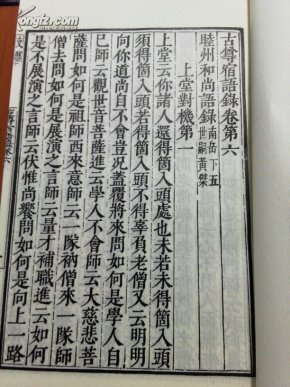 古尊宿語錄卷第六
睦州和尚語錄南岳下五世嗣黃檗
上堂對機第一
上堂云你諸人還得箇入頭處也未若未得箇入頭
須得箇入頭若得箇入頭不得辜負老僧又云明明
向你道尚自不會何況蓋覆將來問如何是學人自
己師云觀世音菩薩進云學人不會師云大慈悲菩
薩問如何是祖師西來意師云一隊衲僧來一隊師
僧去問如何是展演之言師云量才補職進云如何
是不展演之言師云伏惟尚饗問如何是向上一路